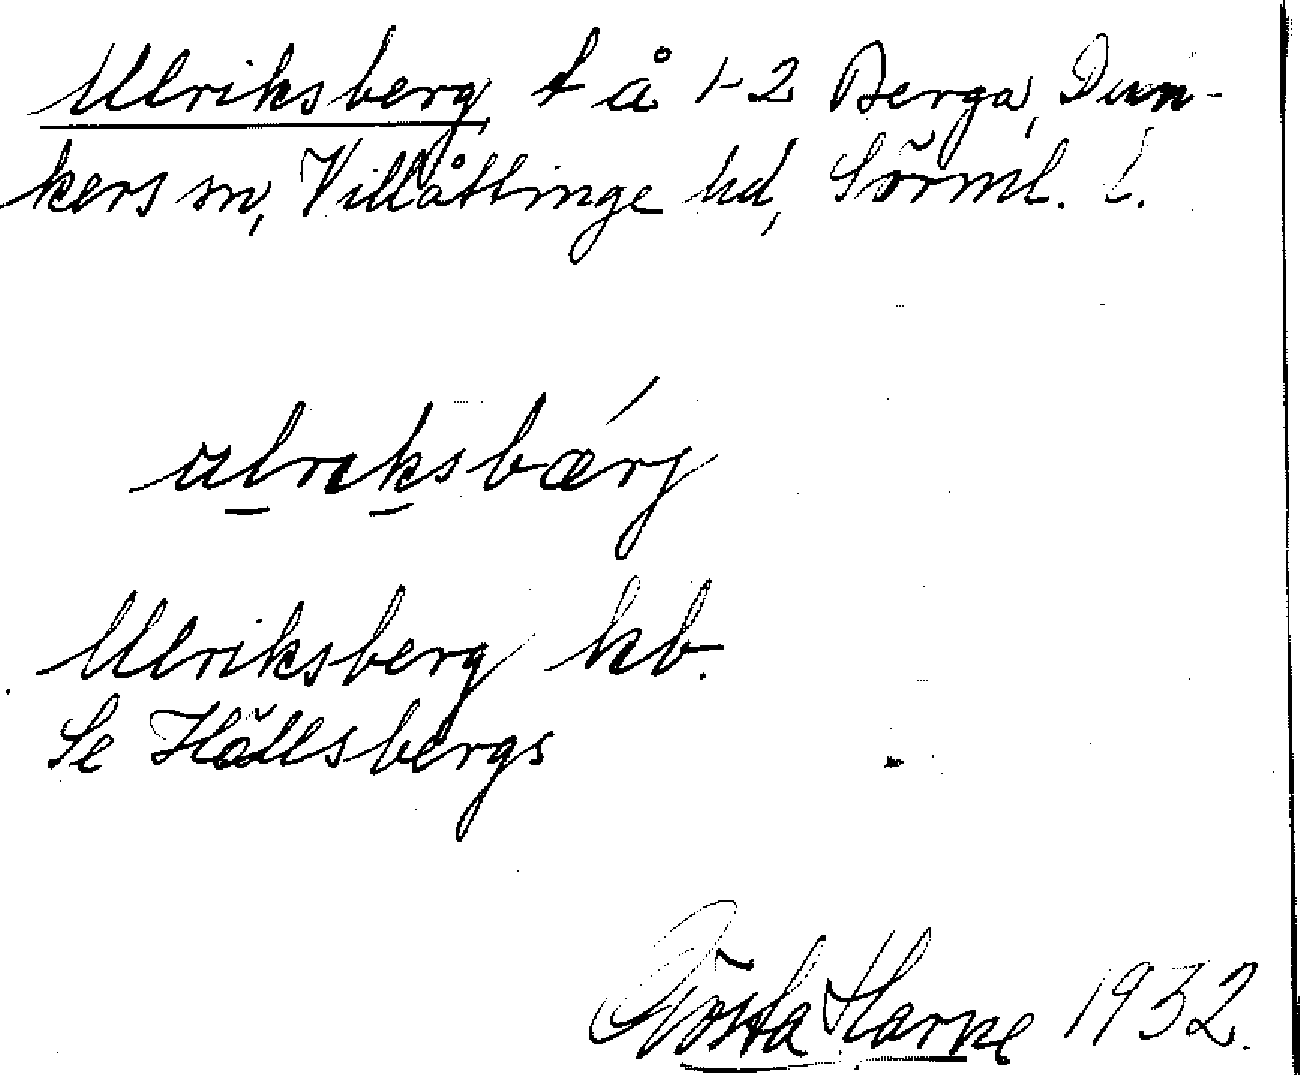 Ulriksberg t å 1-2 Berga, Dun-
kers sn, Villåttinge hd, Sörml. l.
ulriksbærj
Ulriksberg hb.
Se Hällsbergs
Gösta Harne 1932.